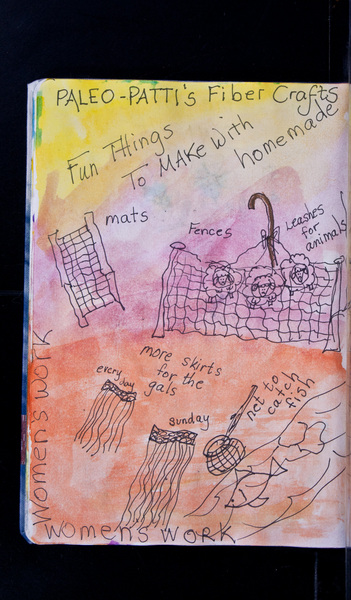 PALEO-PATTI's Fiber Crafts
Fun THings
To MAKe WitH
homemade
mats
Fences
Leashes
for
animals
more skirts
for the
gals
every day
sunday
net to
catch
fish
Women's work
Women's work